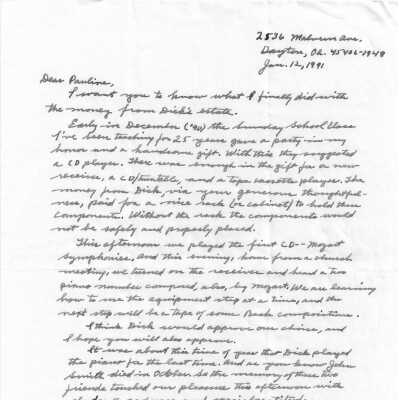 2536 Malvern Ave.
Dayton, Oh. 45406-1948
Jan. 12, 1991
Dear Pauline,
I want you to know what I finally did with
the money from Dick's estate.
Early in December ('90) the Sunday School Class
I've been teaching for 25 years gave a party in my
honor and a handsome gift. With this they suggested
a CD player. There was enough in the gift for a new
receiver, a CD/turntable, and a tape cassette player. The
money from Dick, via your generous thoughtful-
ness, paid for a nice rack (or cabinet) to hold these
components. Without the rack the components would
not be safely and properly placed.
This afternoon we played the first CD-- Mozart
Symphonies, and this evening, home from a church
meeting, we turned on the receiver and heard a two
piano number composed, also, by Mozart. We are learning
how to use the equipment step at a time, and the
next step will be a tape of some Bach compositions.
I think Dick would approve our choice, and
I hope you will also approve.
It was about this time of year that Dick played
the piano for the last time. And as you know John
Smith died in October. So the memory of these two
friends touched our pleasure this afternoon with